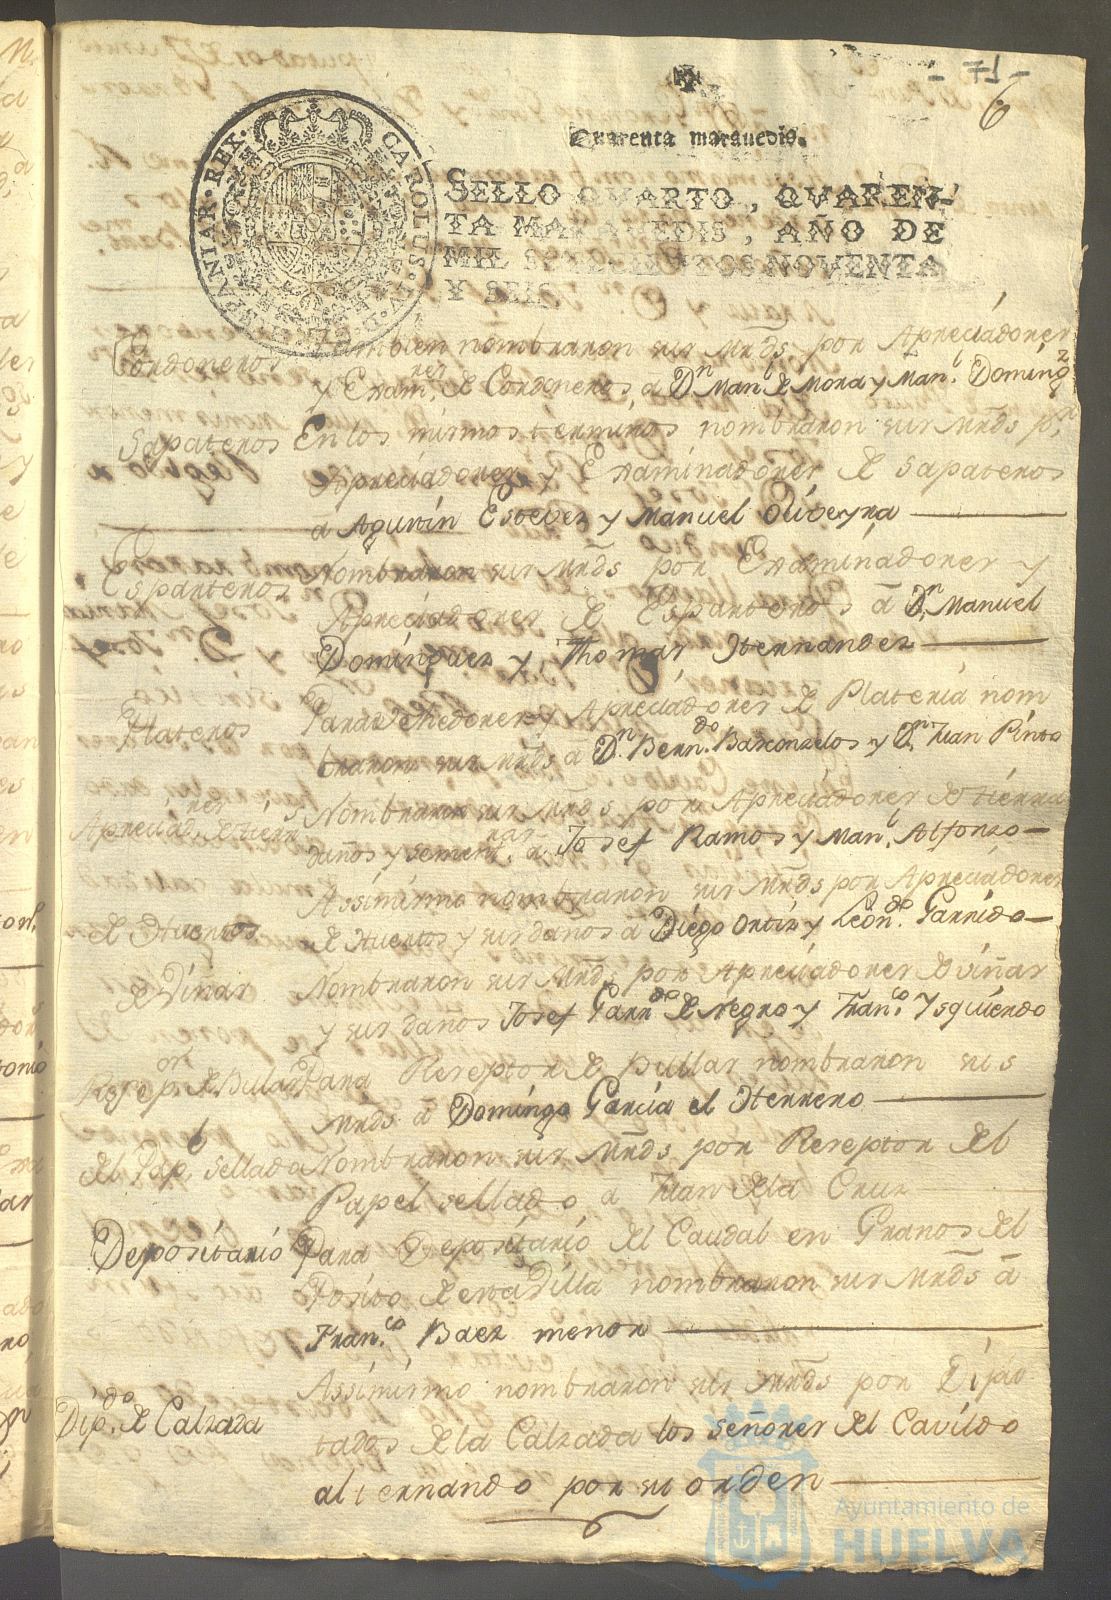 - 71 -
6
Quarenta maravedis.
SELLO QVARTO, QVAREN-
TA MARAVEDIS, AÑO DE
MIL SETECIENTOS NOVENTA
Y SEIS
CAROLUS IV D G HISPANIAR REX
Cordoneros Tambien nombraron sus Mrds por Apreciadores
y Exam.res de Cordoneros, a Dn Man.l de Mora y Man.l Doming.z
Sapateros En los mismos terminos nombraron sus Mrds p.r
Apreciadores y Examinadores de sapateros
a Agustin Estevez y Manuel Oliveyra
Esparteros Nombraron sus Mrds por Examinadores y
Apreciadores de Esparteros a Dn. Manuel
Dominguez y Thomas Hernandez
Plateros Para Vehedores y Apreciadores de Plateria nom
braron sus Mrds a Dn. Bern.do Basconzelos y Dn. Juan Pinto
Apreciad.res de tierr.s Nombraron sus Mrds por Apreciadores de tierra
daños y sement.ras a Josef Ramos y Man.l Alfonzo
de Huertos Assimismo nombraron sus Mrds por Apreciadores
de Huertos y sus daños a Diego Ortiz y Leon.do Garrido
de Viñas Nombraron sus Mrds por Apreciadores de viñas
y sus daños Josef Garr.do de Negro y Fran.co Ysquierdo
Resep.or de Bulas Para Reseptor de Bullas nombraron sus
Mrds a Domingo Garcia el Herrero
del Pap.l sellado Nombraron sus Mrds por Reseptor del
Papel sellado a Juan de la Cruz
Depositario Para Depositario del Caudal en Granos del
Posito de esta Villa nombraron sus Mrds a
Fran.co Baez menor
Dip.do de Calzada Assimismo nombraron sus Mrds por Dipu
tados de la Calzada los señores del Cavildo
alternando por su orden
Ayuntamiento de
HUELVA